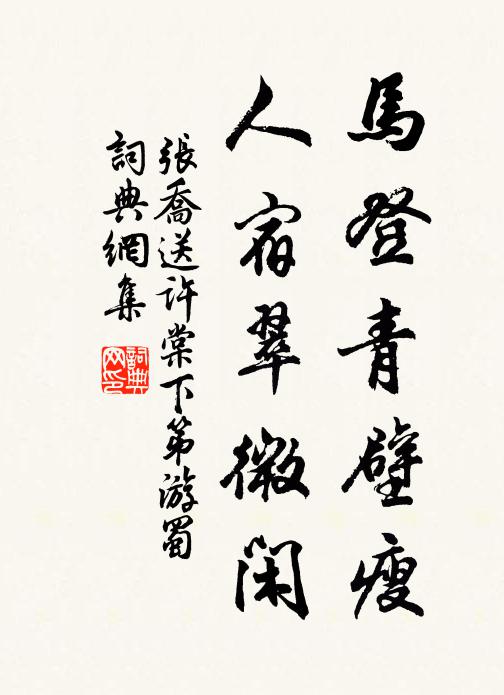 馬登青壁瘦
人宿翠微閑
張喬送許棠下第游蜀
詞典網集
詞典网印